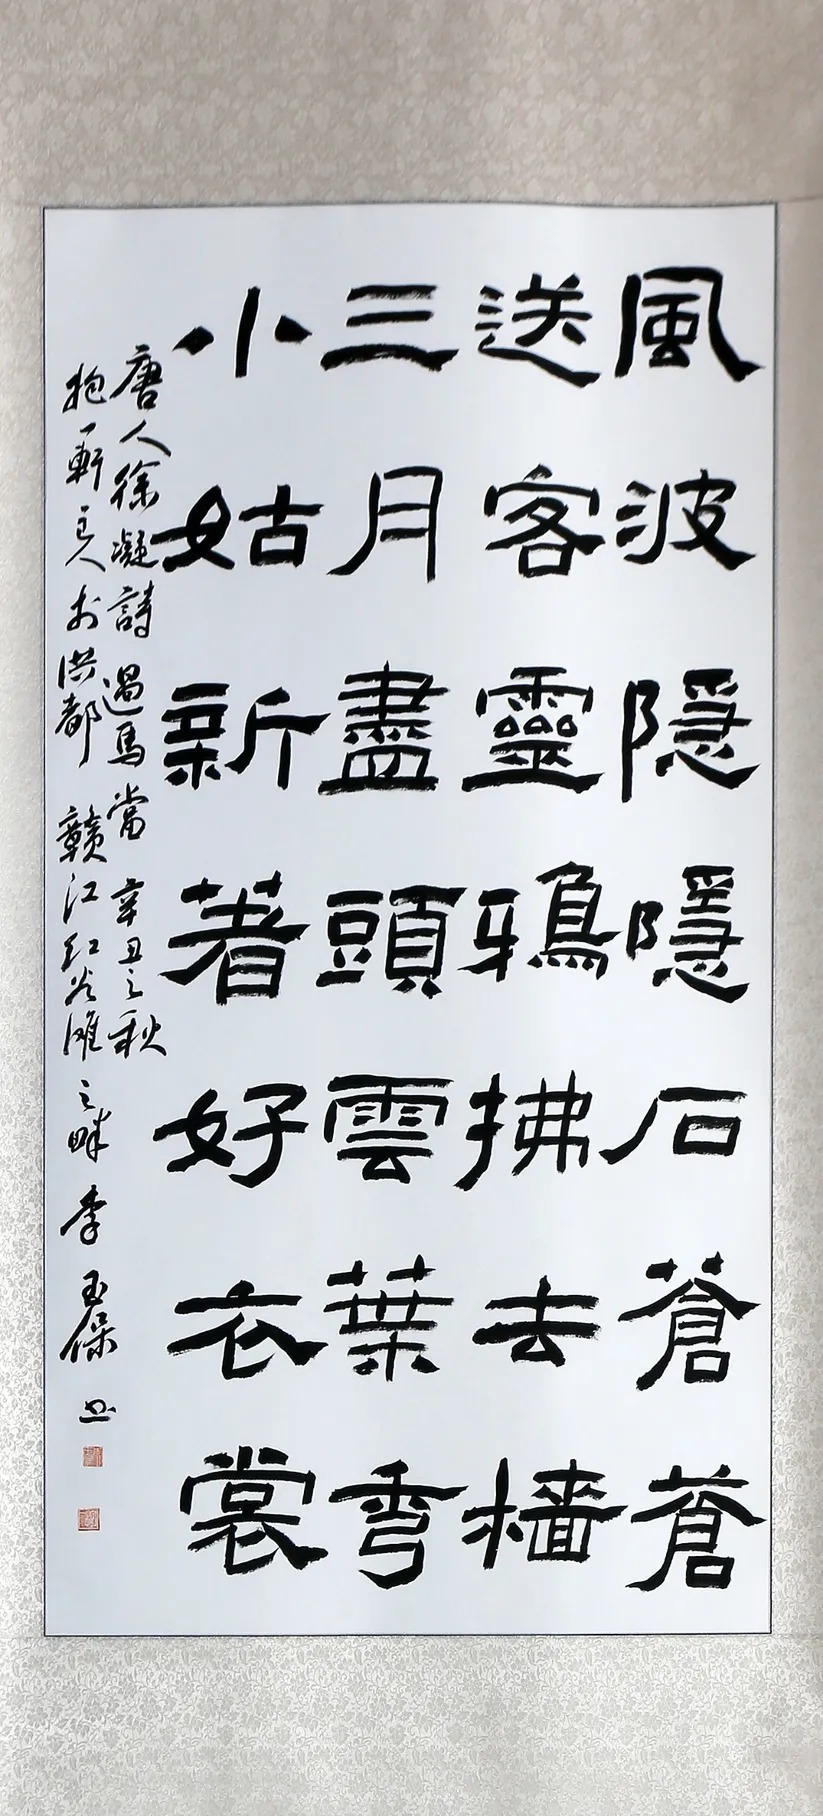 風波隱隱石蒼蒼
送客靈鴉拂去檣
三月盡頭雲葉秀
小姑新著好衣裳
唐人徐凝詩過馬當辛丑之秋
抱一軒主人於洪都贛江紅谷灘之畔李玉保書